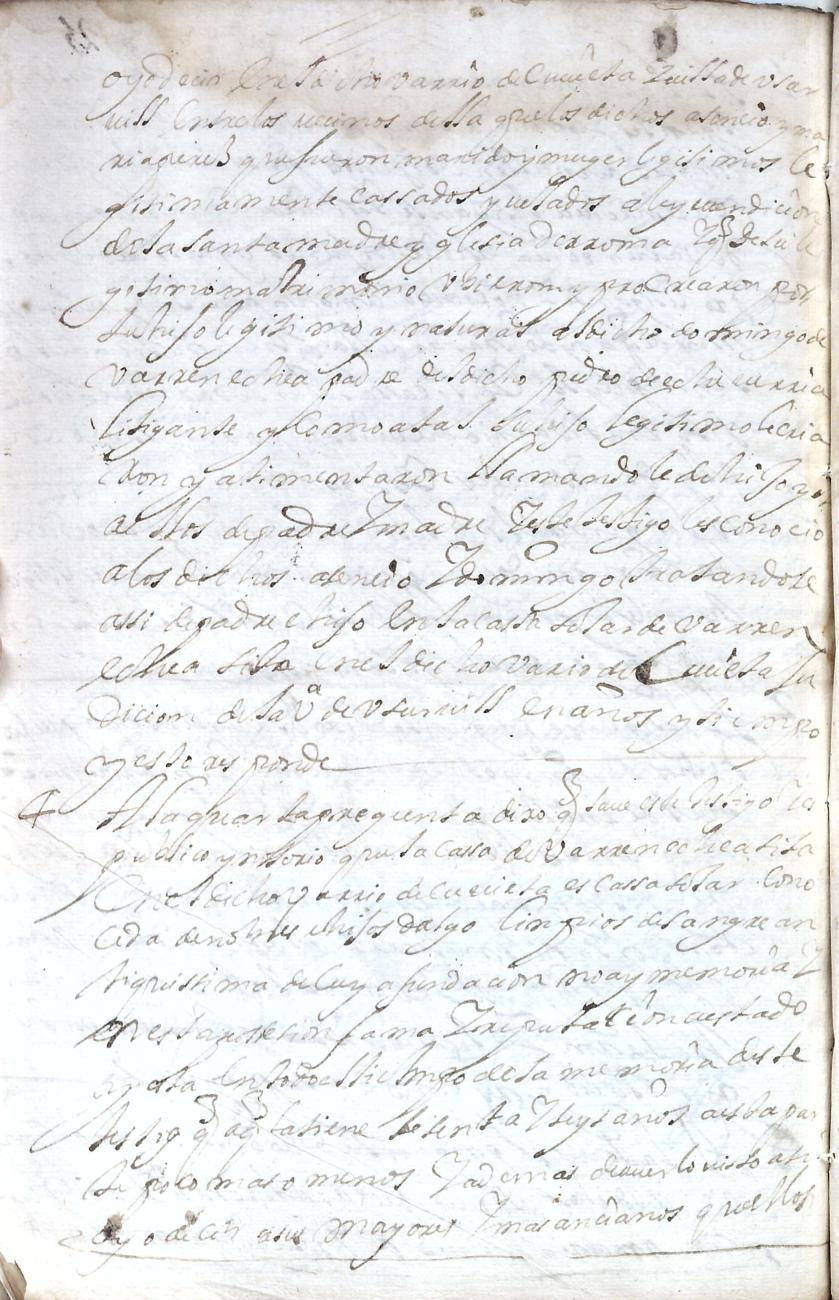 oyo decir en el dicho varrio de Cucueta y villa de Usar
vill entre los vecinos della que los dichos asencio y ma
ria perez que fueron marido y muger legitimos le
gitimamente cassados y velados a ley y vendicion
de la santa madre yglesia de rroma y q de su le
gitimo matrimonio ubieron y procrearon por
su hijo legitimo y natural al dicho domingo de
varrenechea padre del dicho pedro de echeverria
litigante y como a tal su hijo legitimo le cria
ron y alimentaron llamandole de hijo y el
a ellos de padre y madre y este testigo les conocio
a los dichos asencio y domingo tratandose
assi de padre e hijo en la cassa solar de varren
echea sita en el dicho vario de Cucueta Ju
dicion de la va de usurvill en años y tiempo
y esto responde
4 A la quarta pregunta dixo q save este testigo y es
publico y notorio que la cassa de varrenechea sita
en el dicho varrio de cucueta es cassa solar cono
cida de nobles hijos dalgo limpios de sangre an
tiquissima de cuya fundacion no ay memoria y
en esta posesion fama y reputacion a estado
y esta en todo el tiempo de la memoria deste
testigo q aq la tiene sesenta y seys años a esta par
te poco mas o menos y ademas de averlo visto asi
oyo decir a sus mayores y mas ancianos que ellos